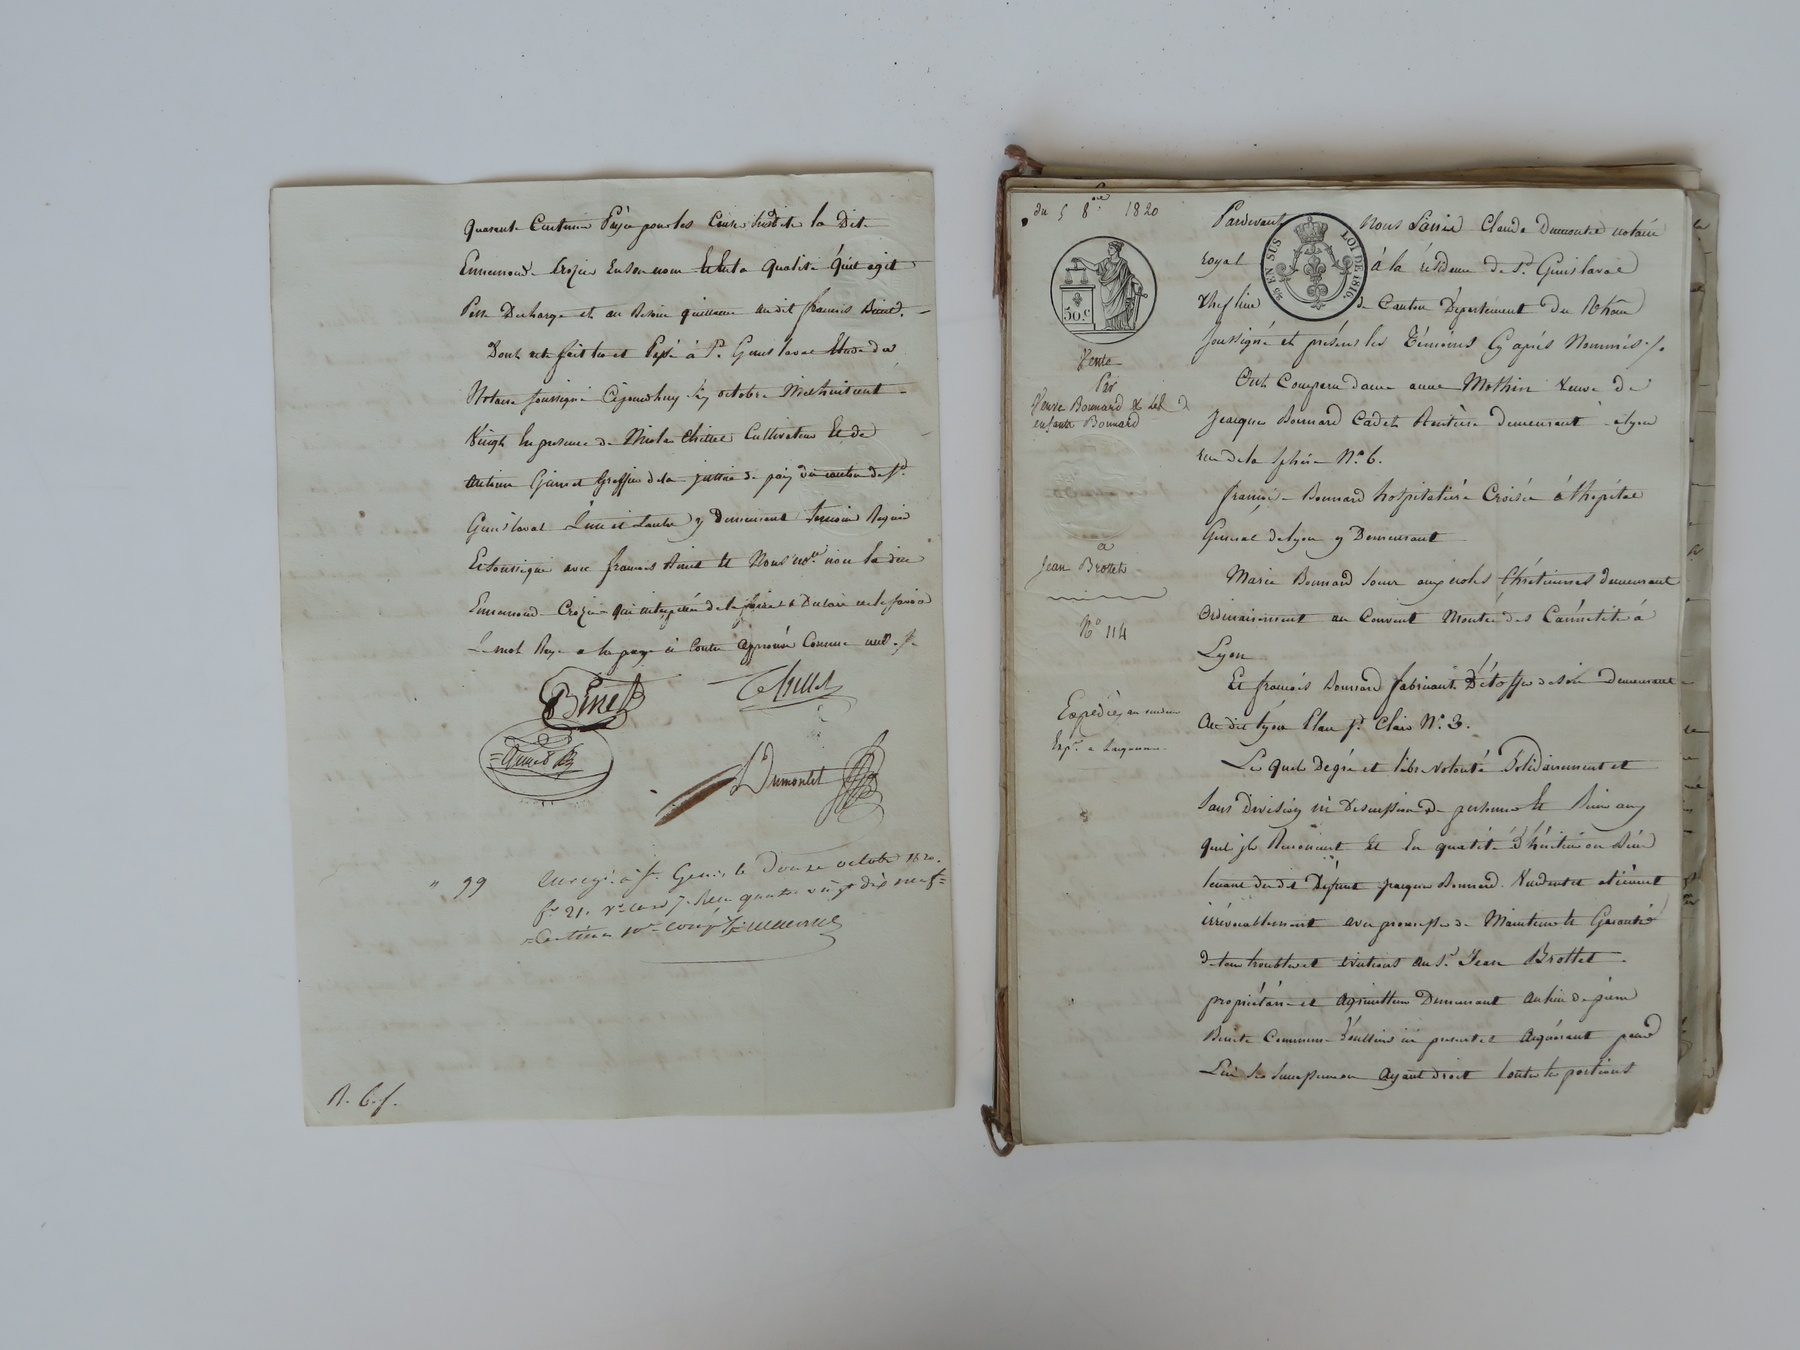 quarante Centimes Payé pour les Causes susdite la Dite
Ennemonde Crozier En Son nom Et En la Qualité qu'il agit
Passe Decharge et au Besoin quittance audit françois Binet.
Dont acte fait lu et Passé à St. Genis laval Etude du
Notaire soussigné Cejourd'huy octobre Mil huit cent
Vingt En presence de Chillet Cultivateur Et de
Greffier de la justice de paix du canton de St.
Genis laval L'un et L'autre y Demeurant temoin Requis
Et Soussigné avec françois Binet Et Nous no.re non la dite
Ennemonde Crozier qui de le faire a Declaré ne le savoir
Le mot Raye a la page ci Contre approuvé Comme nul
Binet
Chillet
Dumontet
" 99
Enregé. à St. Genis le Douze octobre 1820.
fo. 21. Vo. case 7. Reçu quatre vingt dix neuf
Centimes 10e compris
R. 6. f.
du 5 8.bre 1820
50.c
Vente
Par
Veuve Bonnard & Les
enfants Bonnard
à
Jean Brottet
No 114
Expedié
Pardevant Nous Claude Dumontet notaire
45 EN SUS LOI DE 1816.
royal à la résidence de St. Genis laval
Chef lieu de Canton Département du Rhône
Soussigné et présens les Témoins Cy après Nommés
Ont Comparu dame anne Mathieu Veuve de
Jacques Bonnard Cadet Rentiere demeurant à lyon
rue de la Sphère No. 6.
françoise Bonnard hospitalière Croisée à l'hopital
General de lyon y Demeurant
Marie Bonnard Soeur aux écoles Chrétiennes demeurant
Ordinairement au Couvent Montée des Carmélites à
Lyon
Et françois Bonnard fabricant D'étoffes de soie demeurant
au dit lyon Place St. Clair No. 3.
Lesquels De gré et libre volonté Solidairement et
Sans Division ni Discussion de personnes Et Biens aux
quels ils Renoncent Et En qualité D'héritiers ou Bien
tenans du dit Défunt Jacques Bonnard Vendent et alienent
irrévocablement avec promesse de Maintenir Et Garantir
de tous troubles et évictions au Sr. Jean Brottet
propriétaire et Agriculteur Demeurant au lieu de pierre
Benite Commune D'oullins ici present et Acquérant pour
Lui Ses Successeurs ou Ayant droit toutes les portions